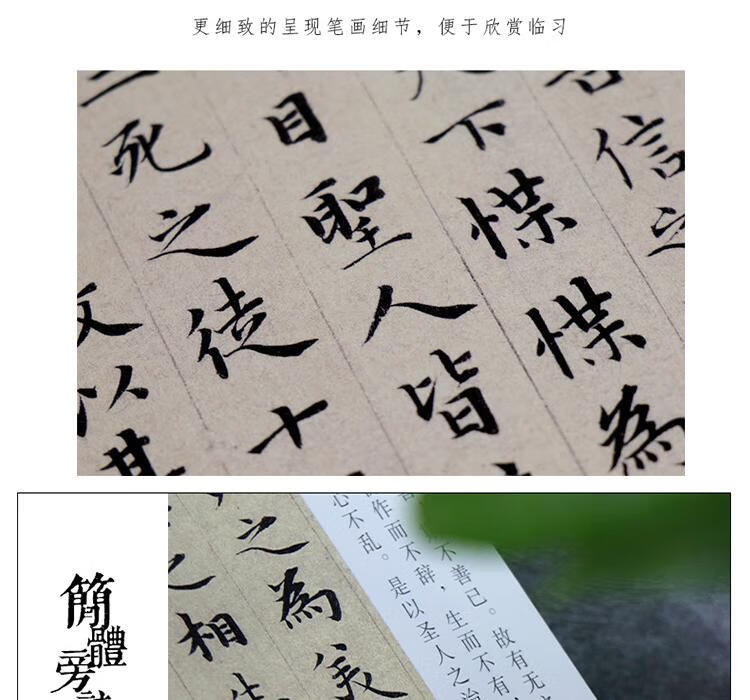 更细致的呈现笔画细节，便于欣赏临习
信之
下惵惵為
目聖人皆
三死之徒十
以其
簡體旁
不善已。故有无
作而不辞，生而不有
心不乱。是以圣人之治
之為美
之相